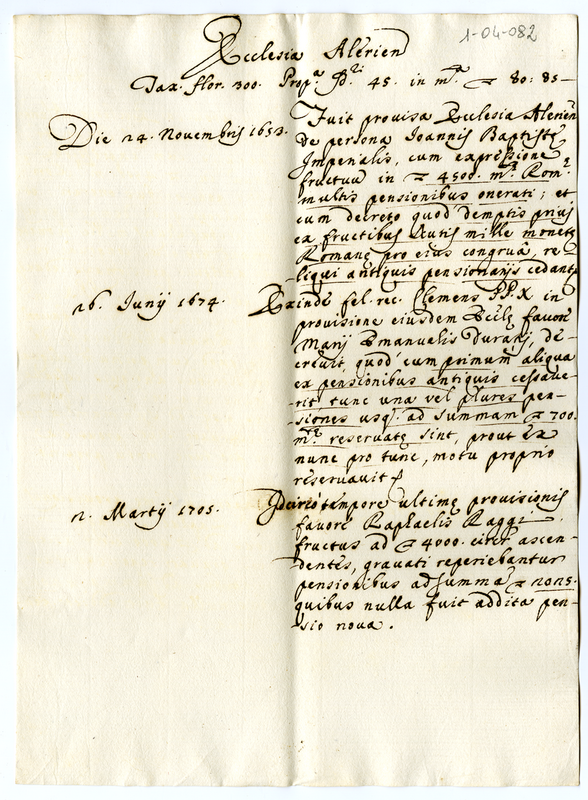 1-04-082
Ecclesia Alerien
Tax. flor. 300. Prop.ª 45. in m.ª 80: 85
Die 24. Novembris 1653.
Fuit provisa Ecclesia Alerien
de persona Ioannis Baptistę
Imperialis, cum expressione
fructuũ in 4500. m.ę Rom.ę
multis pensionibus onerati; et
cum decreto quod demptis prius
ex fructibus scutis mille monetę
Romanę pro eius congruâ, re-
liqui antiquis pensionarijs cedant
26. Junij 1674.
Exinde fel. rec. Clemens PP. X in
provisione eiusdem Ecclę favore
Marij Emanuelis Duratij, de-
crevit, quod cum primum aliqua
ex pensionibus antiquis cessave-
rit tunc una vel plures pen-
siones usq. ad summam 700.
m.tę reservatę sint, prout ex
nunc pro tunc, motu proprio
reservavit
2. Martij 1705.
Idcirco tempore ultimę provisionis
favore Raphaelis Raggi
fructus ad 4000. circr ascen-
dentes, gravati reperiebantur
pensionibus ad summã
quibus nulla fuit addita pen-
sio nova.